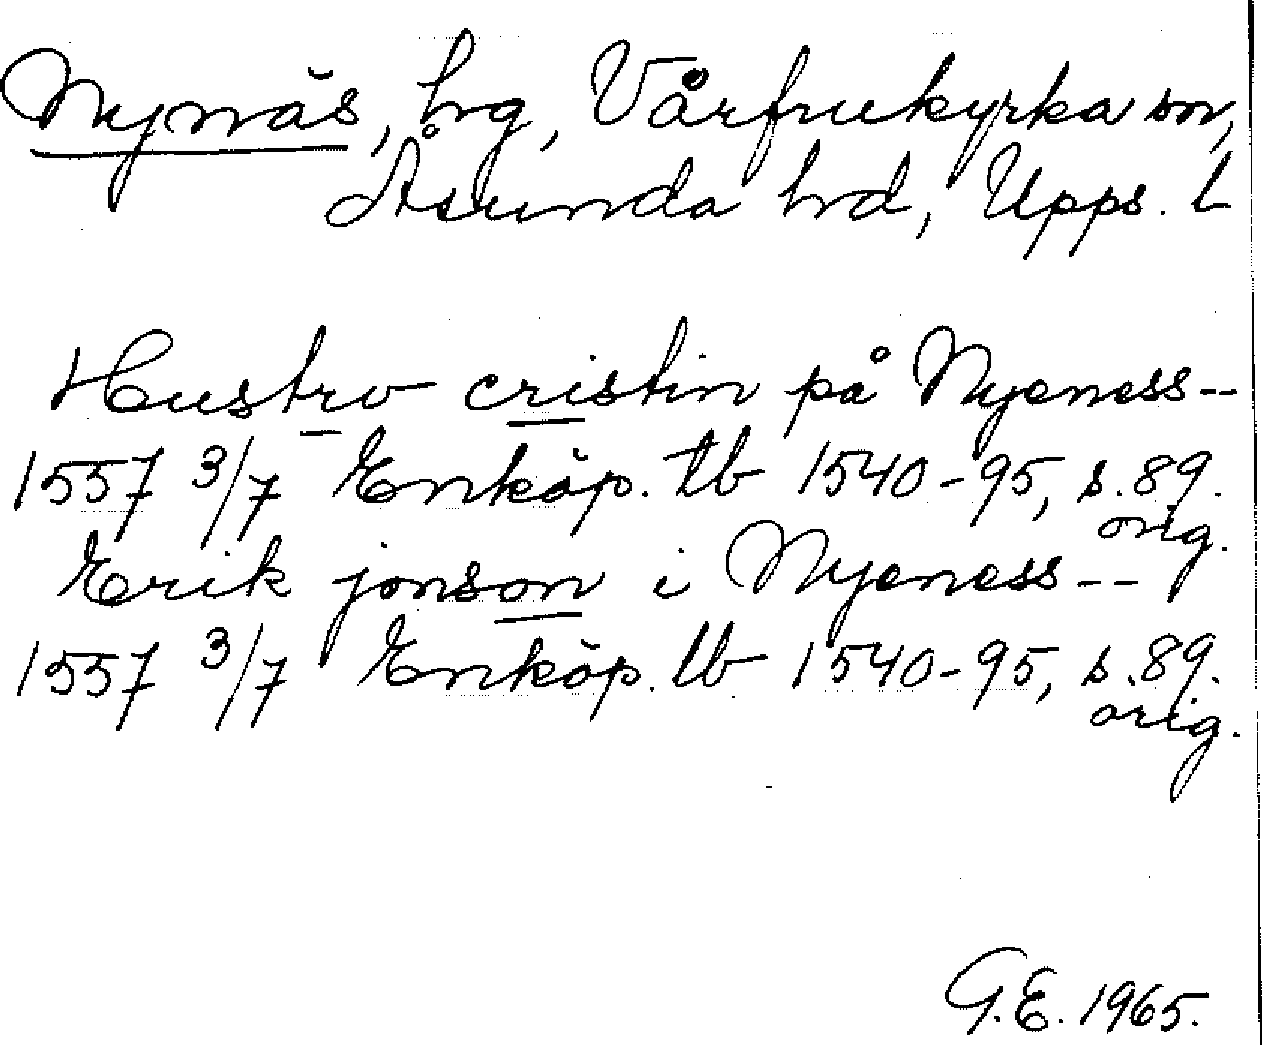 Nynäs, hg, Vårfrukyrka sn,
Åsunda hd, Upps. L
Hustrv cristin på Nyeness--
1557 3/7 Enköp. tb 1540-95, s. 89.
orig.
Erik jonson i Nyeness--
1557 3/7 Enköp. tb 1540-95, s. 89.
orig.
G.E. 1965.